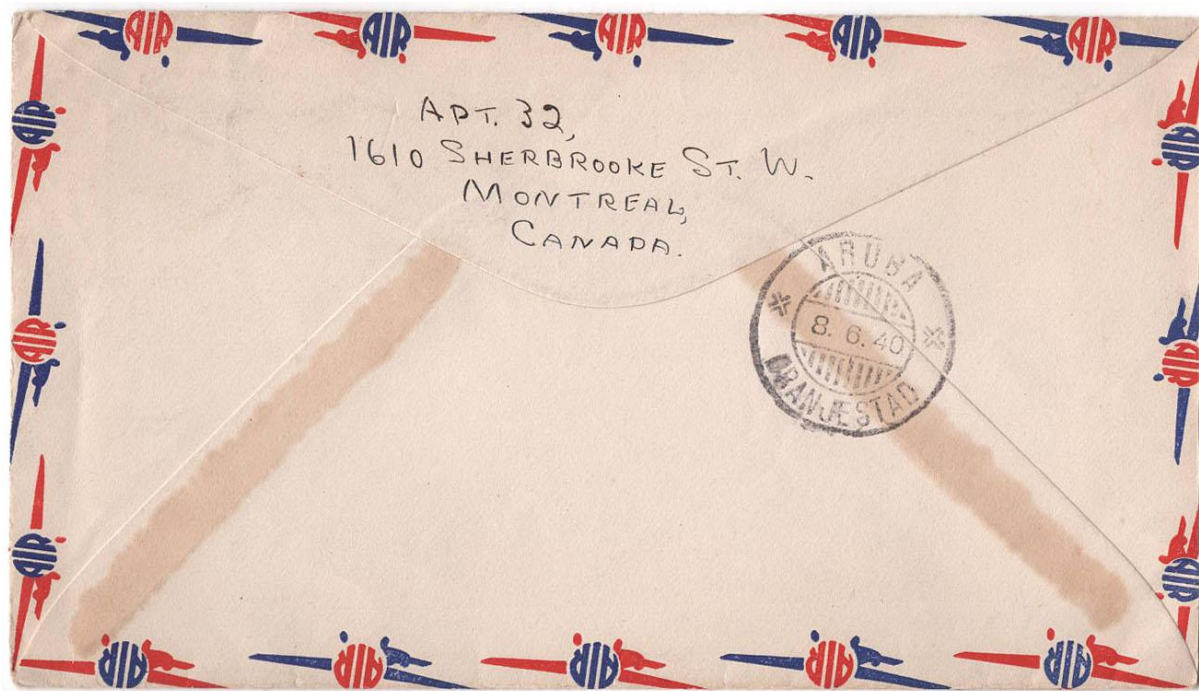 AIR AIR AIR AIR AIR
APT. 32,
1610 SHERBROOKE ST. W.
MONTREAL,
CANADA.
ARUBA
8. 6. 40
ORANJESTAD
AIR
AIR
AIR
AIR
AIR
AIR
AIR AIR AIR AIR AIR